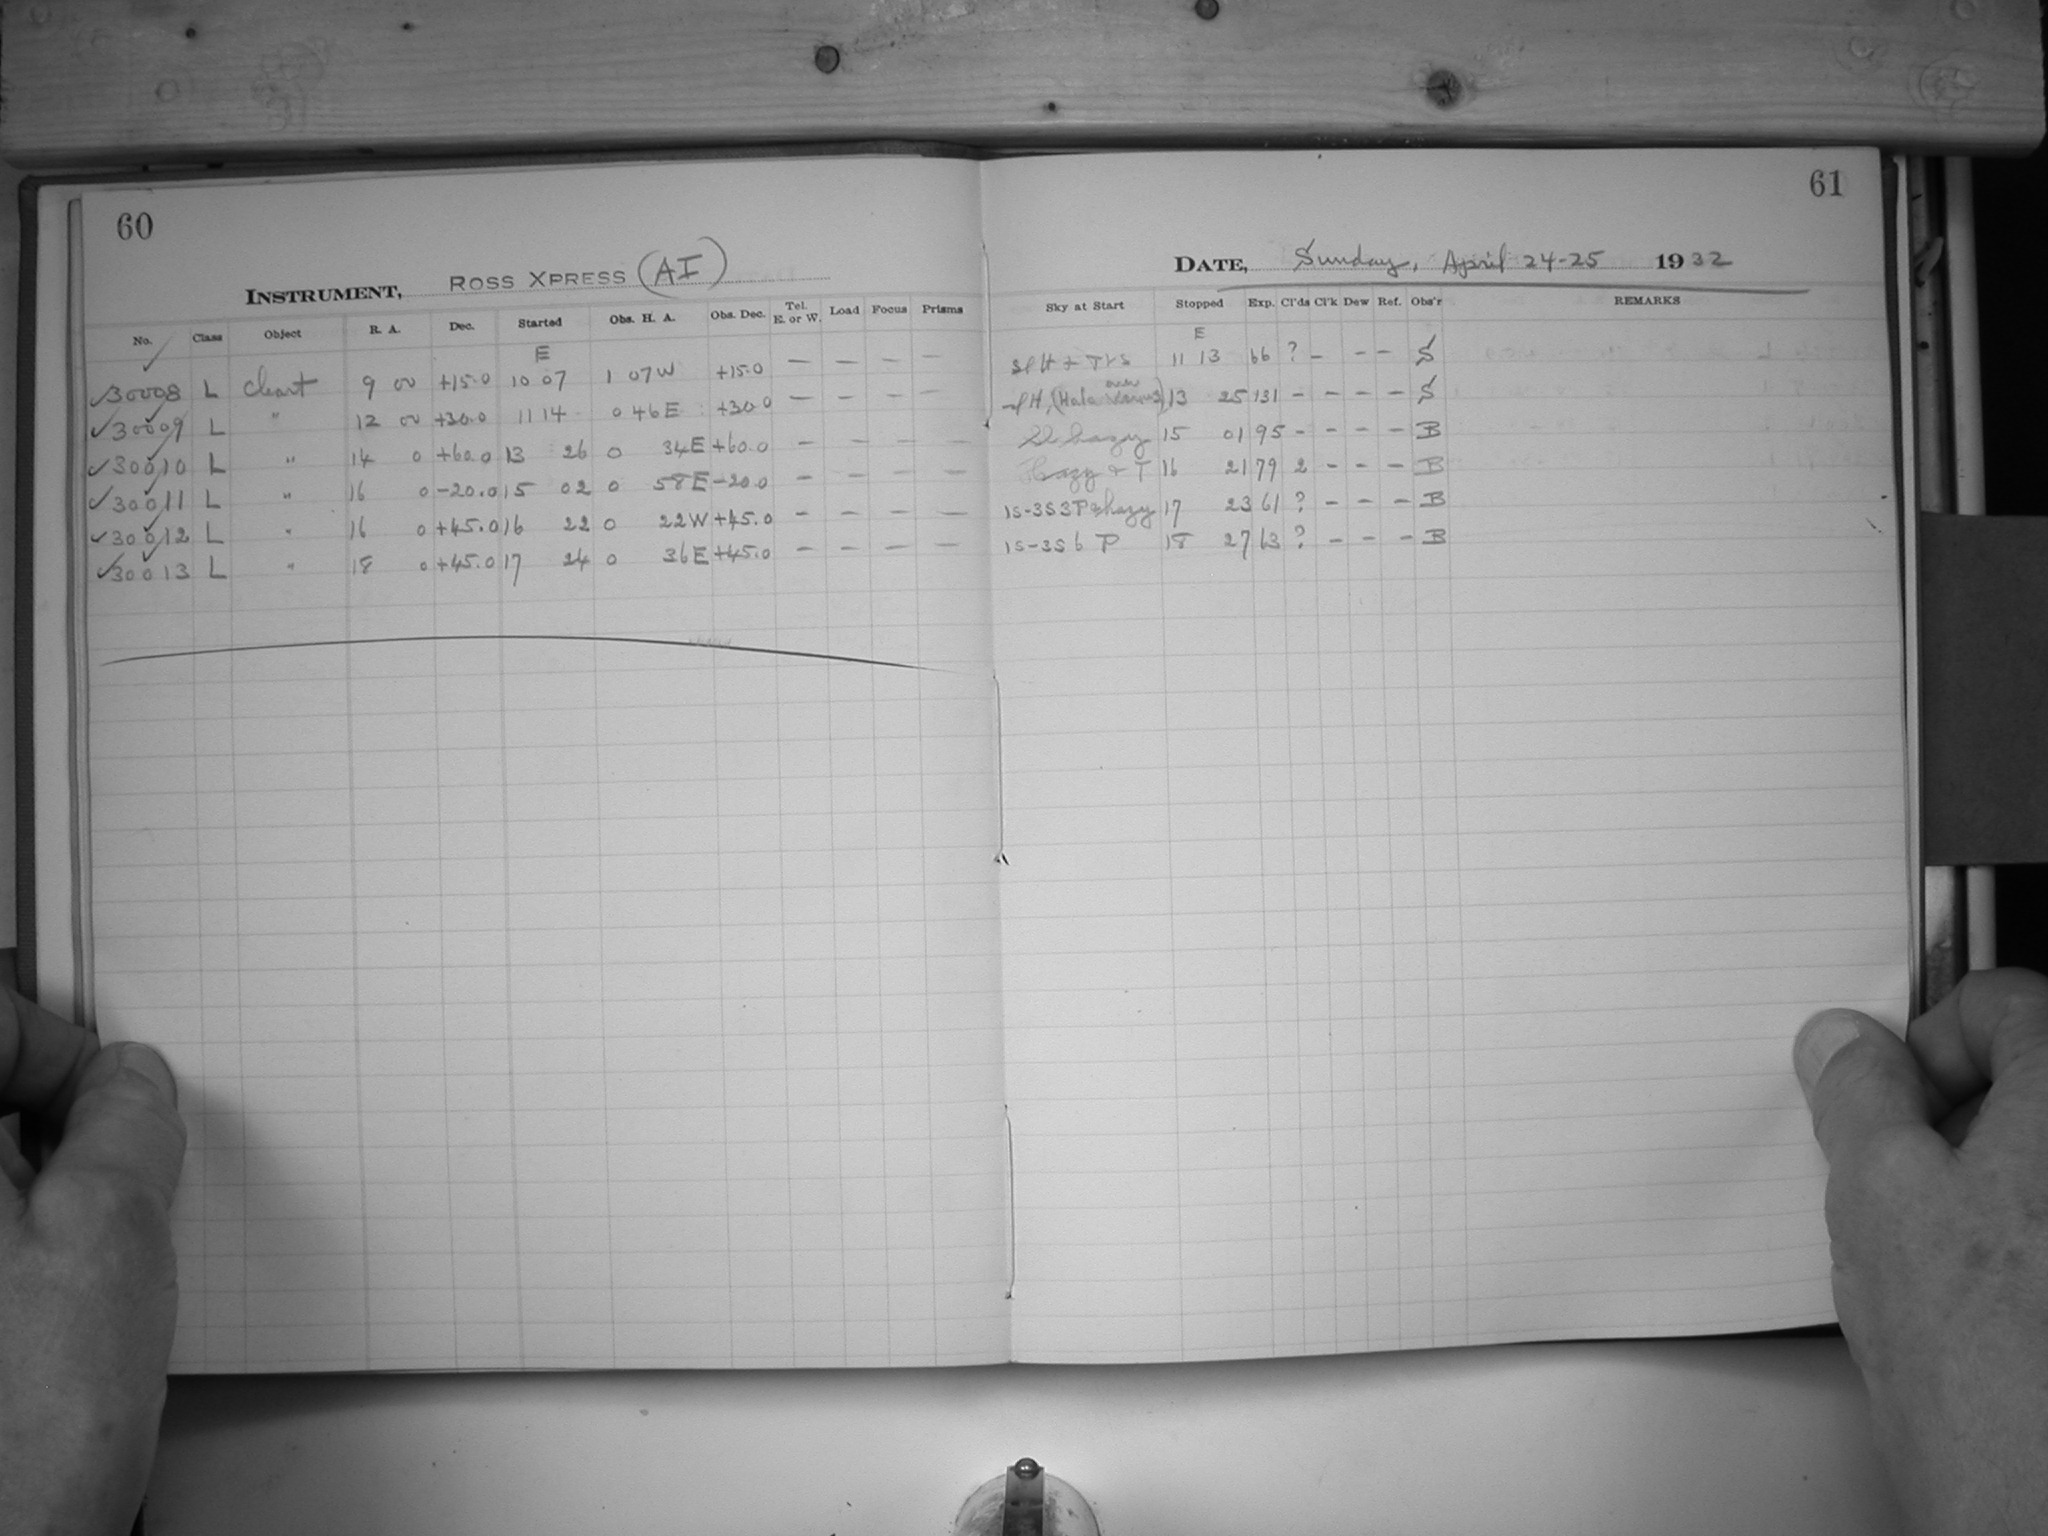 60
INSTRUMENT, ROSS XPRESS (AI)
No. Class Object R. A. Dec. Started Obs. H. A. Obs. Dec. Tel. E. or W. Load Focus Prisms
E
30008 L Chart 9 00 +15.0 10 07 1 07W +15.0 — — — —
30009 L " 12 00 +30.0 11 14 0 46E +30.0 — — — —
30010 L " 14 0 +60.0 13 26 0 34E +60.0 — — — —
30011 L " 16 0 -20.0 15 02 0 58E -20.0 — — — —
30012 L " 16 0 +45.0 16 22 0 22W +45.0 — — — —
30013 L " 18 0 +45.0 17 24 0 36E +45.0 — — — —
61
DATE, Sunday, April 24-25 1932
Sky at Start Stopped Exp. Cl'ds Cl'k Dew Ref. Obs'r REMARKS
E
11 13 66 ? - - - S
13 25 131 - - - - S
hazy 15 01 95 - - - - B
Hazy & T 16 21 79 2 - - - B
1S-3S3P & hazy 17 23 61 ? - - - B
1S-3S6 P 18 27 63 ? - - - B